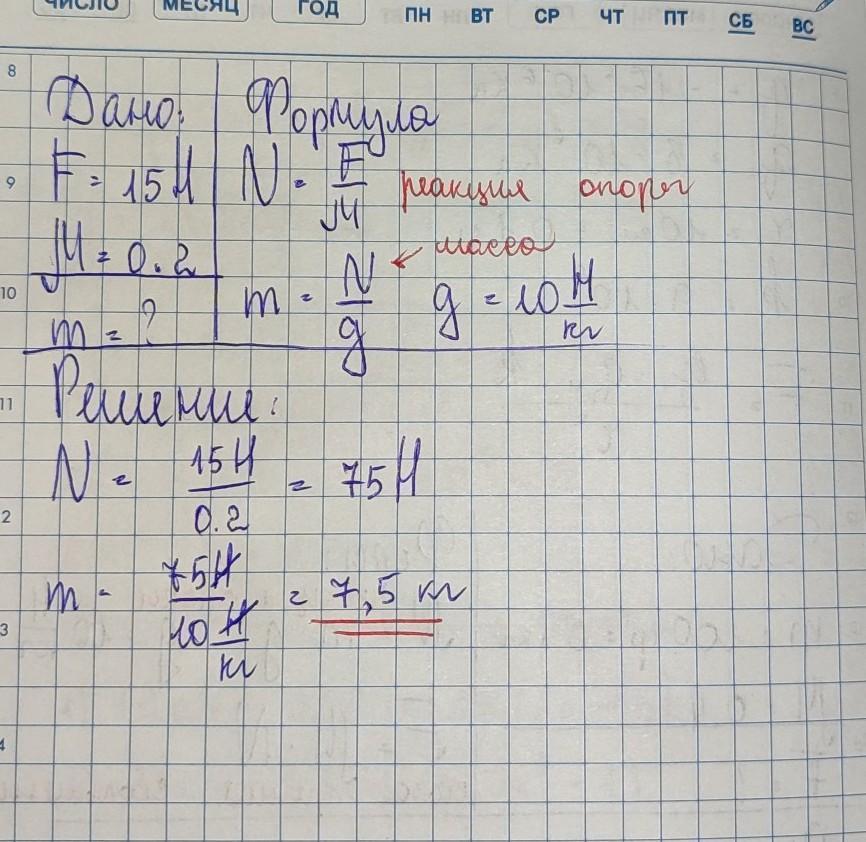 ЧИСЛО МЕСЯЦ ГОД ПН ВТ СР ЧТ ПТ СБ ВС
8
Дано: Формула
9
F = 15 Н N = F/μ реакция опоры
μ = 0.2 ← масса
10
m = ? m = N/g g = 10 Н/кг
11
Решение:
N = 15 Н/0.2 = 75 Н
2
m = 75Н/10 Н/кг = 7,5 кг
3
4